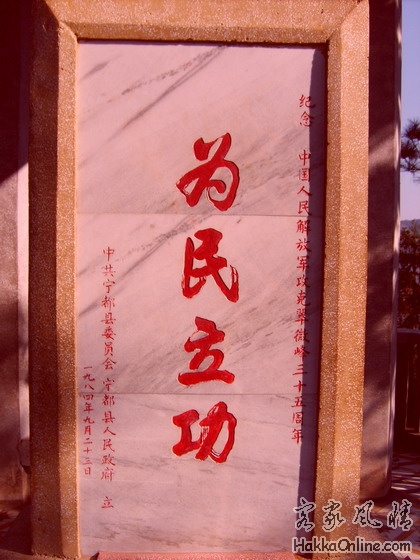 纪念 中国人民解放军攻克翠微峰三十五周年
为民立功
中共宁都县委员会 宁都县人民政府 立
一九八四年九月二十三日
客家风情
HakkaOnline.com